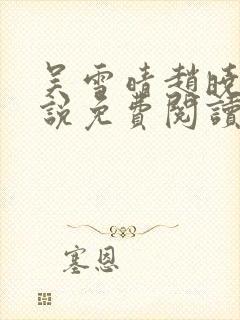 吴雪晴趙曉
說免費閱讀
塞恩